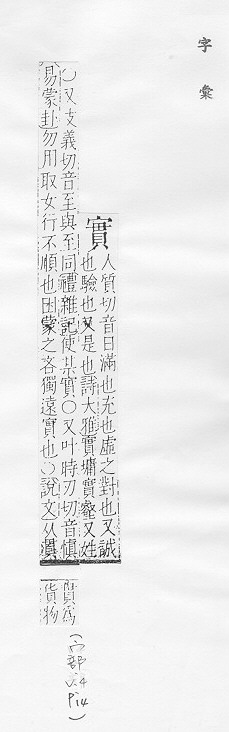 字彙
實
人質切音日滿也充也虛之對也又誠
也驗也又是也詩大雅實墉實壑又姓
○又支義切音至與至同禮雜記使某實○又叶時刃切音愼
易蒙卦勿用取女行不順也困蒙之吝獨遠實也○說文从
貫爲
貨物
(宀部
P14)